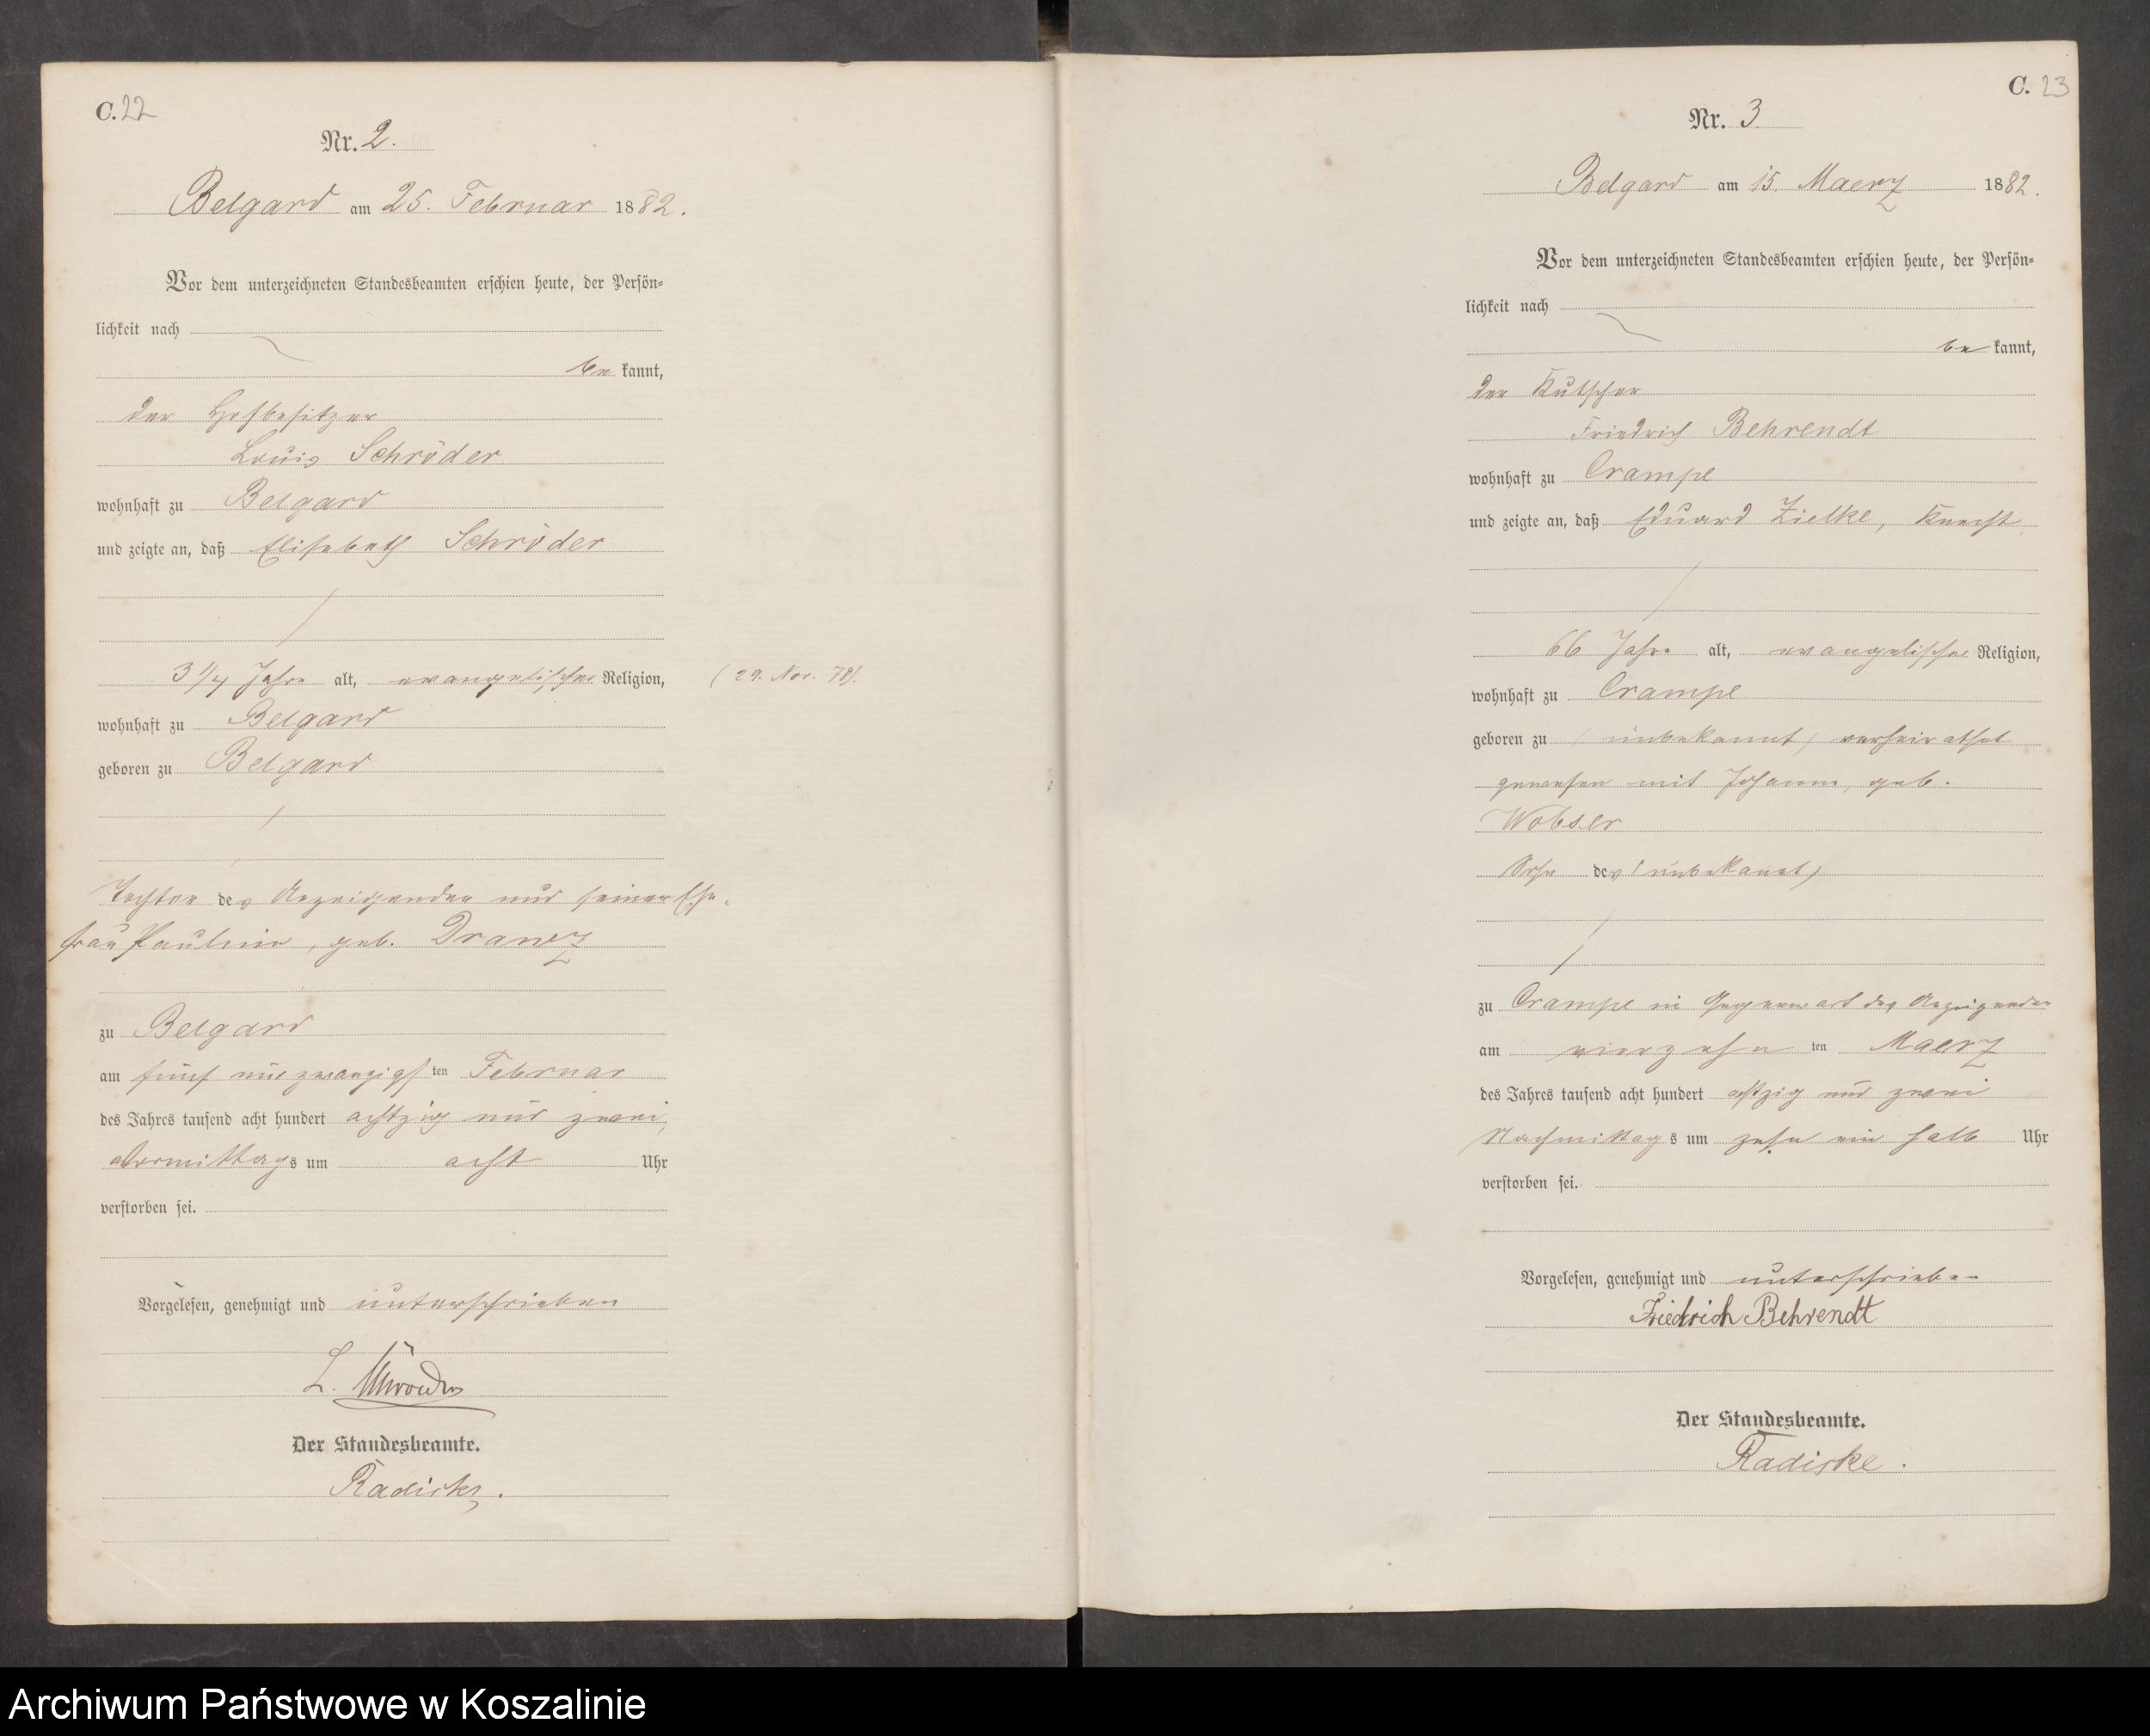 C. 22
Nr. 2.
Belgard am 25. Februar 1882.
Vor dem unterzeichneten Standesbeamten erschien heute, der Persön-
lichkeit nach
be kannt,
der Hofbesitzer
Louis Schröder
wohnhaft zu Belgard
und zeigte an, daß Elisabeth Schröder
3 1/4 Jahre alt, evangelischer Religion, (29. Nov. 78).
wohnhaft zu Belgard
geboren zu Belgard
Tochter des Anzeigenden und seiner Ehe-
frau Pauline, geb.
zu Belgard
am fünf und zwanzigsten Februar
des Jahres tausend acht hundert achtzig und zwei,
Vormittags um acht Uhr
verstorben sei.
Vorgelesen, genehmigt und unterschrieben
L. Schroeder
Der Standesbeamte.
Radiske.
C. 23
Nr. 3
Belgard am 15. Maerz 1882.
Vor dem unterzeichneten Standesbeamten erschien heute, der Persön-
lichkeit nach
be kannt,
der Kutscher
Friedrich Behrendt
wohnhaft zu Crampe
und zeigte an, daß Eduard Zielke, Knecht
66 Jahre alt, evangelischer Religion,
wohnhaft zu Crampe
geboren zu (unbekannt) verheirathet
gewesen mit Johann, geb.
Wobser
Sohn des (unbekannt)
zu Crampe in Gegenwart des Anzeigenden
am vierzehn ten Maerz
des Jahres tausend acht hundert achtzig und zwei
Nachmittags um zehn ein halb Uhr
verstorben sei.
Vorgelesen, genehmigt und unterschrieben
Friedrich Behrendt
Der Standesbeamte.
Radiske.
Archiwum Państwowe w Koszalinie